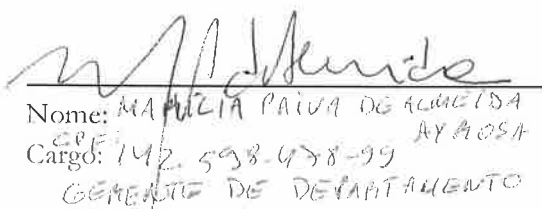 Nome: MARÍLIA PAIVA DE ALMEIDA
AYROSA
CPF:
Cargo: 142.598.478-99
GERENTE DE DEPARTAMENTO